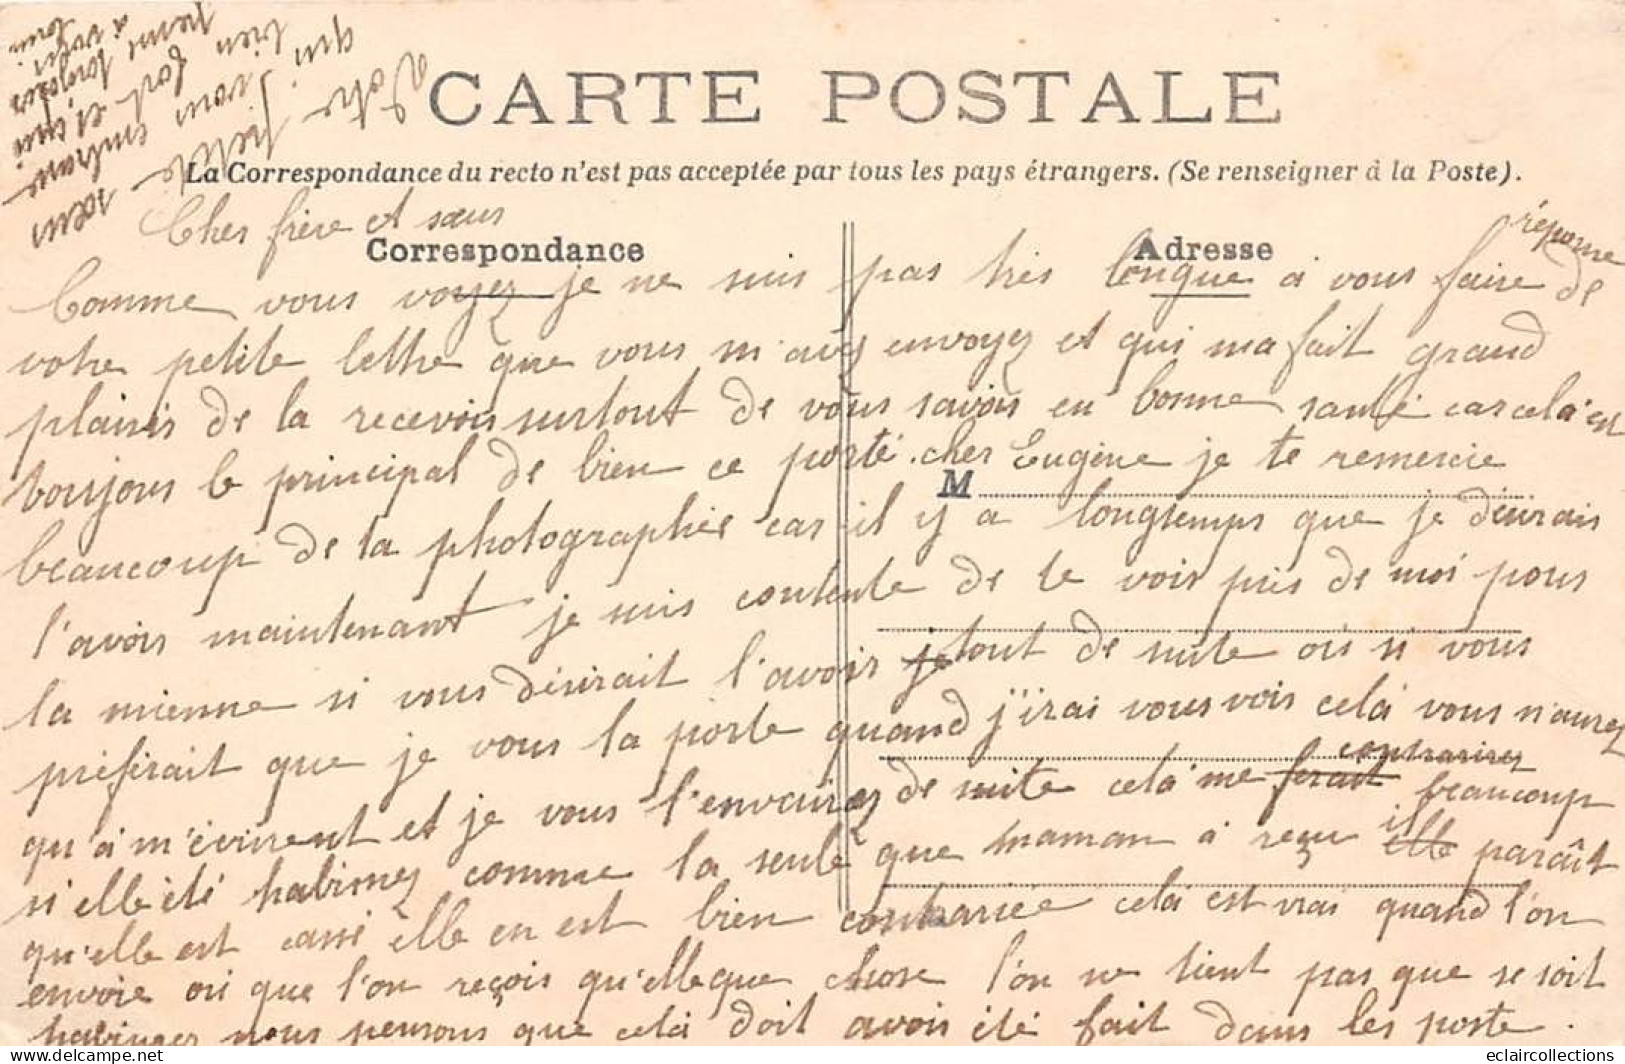 CARTE POSTALE
La Correspondance du recto n'est pas acceptée par tous les pays étrangers. (Se renseigner à la Poste).
Correspondance
Adresse
M
Cher frère et sœur
Comme vous voyez je ne suis pas très longue a vous faire réponse de
votre petite lettre que vous m'avez envoyez et qui ma fait grand
plaisir de la recevoir surtout de vous savoir en bonne santé car cela est
toujours le principal de bien ce porté. cher Eugène je te remercie
beaucoup de ta photographie car il y a longtemps que je désirais
l'avoir maintenant je suis contente de te voir près de moi pour
la mienne si vous désirait l'avoir je tout de suite où si vous
préférait que je vous la porte quand j'irai vous voir celà vous n'aurez
qu'à m'écrirent et je vous l'envairez de suite celà me ferait contrarirez beaucoup
si elle été habimez comme la seule que maman à reçu elle il paraît
qu'elle est cassé elle en est bien contrariée celà est vrai quand l'on
envoie où que l'on reçois qu'elleque chose l'on ne tient pas que se soit
habimez nous pensons que celà doit avoir été fait dans les poste.
Votre petite sœur
qui vous embrasse
bien fort et suis
toujours
à vous
eclaircollections